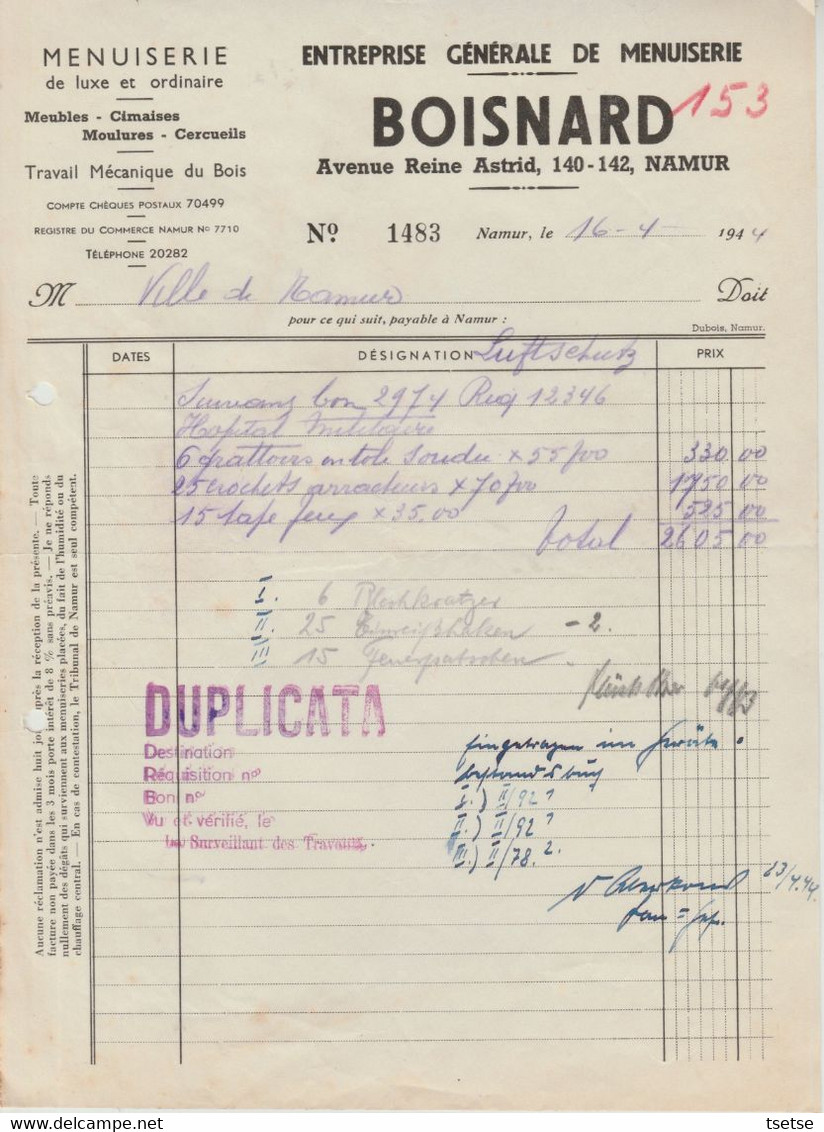 MENUISERIE
de luxe et ordinaire
Meubles - Cimaises
Moulures - Cercueils
Travail Mécanique du Bois
COMPTE CHÈQUES POSTAUX 70499
REGISTRE DU COMMERCE NAMUR Nº 7710
TÉLÉPHONE 20282
ENTREPRISE GÉNÉRALE DE MENUISERIE
BOISNARD
153
Avenue Reine Astrid, 140-142, NAMUR
Nº 1483 Namur, le 16-4- 1944
M Ville de Namur Doit
pour ce qui suit, payable à Namur :
Dubois, Namur.
DATES DÉSIGNATION Luftschutz PRIX
Suivant bon 2974 Req 12346
Hopital Militaire
6 grattoirs en tole Soudée x 55,00 330 00
25 crochets arracheurs x 70,00 1750 00
15 tape feux x 35.00 525 00
total 2605 00
I. 6 Blechkratzer
II. 25 Einreißhaken - 2.
III 15 Feuerpatschen
DUPLICATA
Destination
Réquisition nº
Bon nº
Vu et vérifié, le
Le Surveillant des Travaux,
Eingetragen im Geräte
bestandsbuch
I.) II/92
II.) II/92
III.) II/78.
23/4.44
Aucune réclamation n'est admise huit jours après la réception de la présente. — Toute
facture non payée dans les 3 mois porte intérêt de 8 % sans préavis. — Je ne réponds
nullement des dégâts qui surviennent aux menuiseries placées, du fait de l'humidité ou du
chauffage central. — En cas de contestation, le Tribunal de Namur est seul compétent.
delcampe.net
tsetse